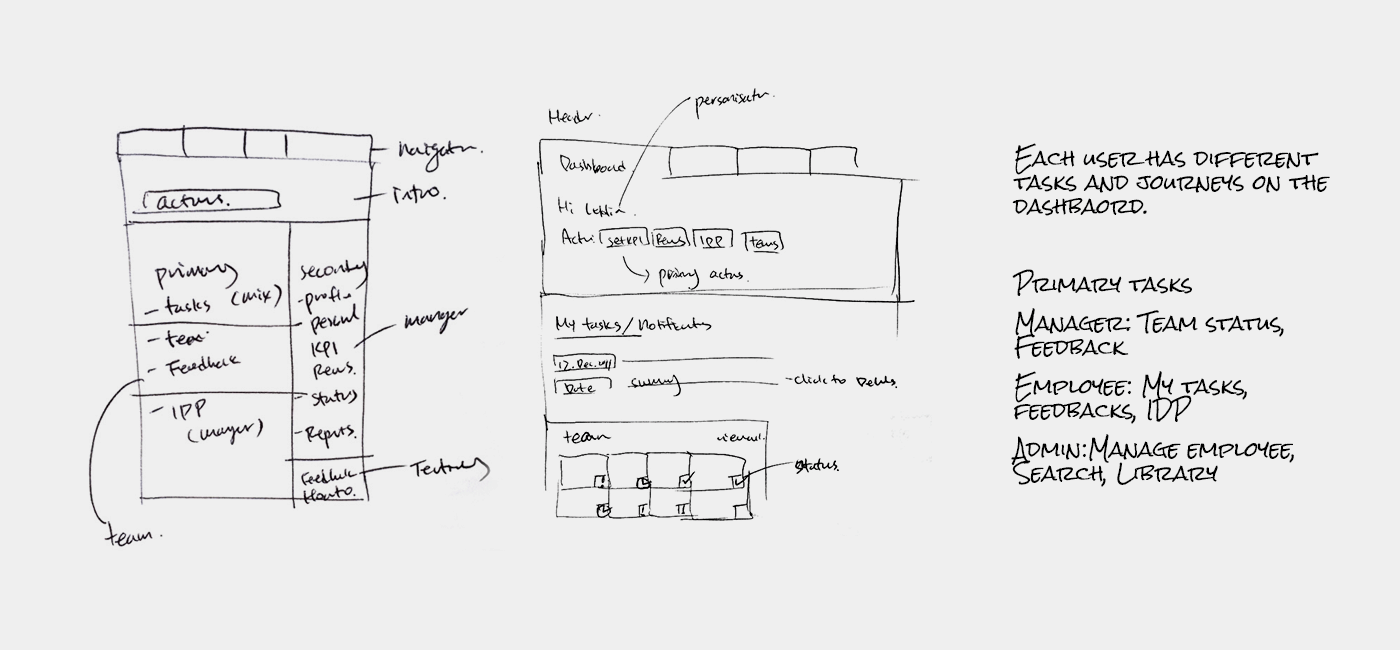 navigatn.
Intro.
actions.
primary
- tasks (mix)
- team
- Feedback
- IDP
(manager)
secondary
- profile
- personal
KPI
- status
- Reports.
Feedback
Howto.
manager
Tertiary
team.
Header.
personisatn.
Dashboard
Hi
set KPI
IPP
primary actns.
My tasks / Notificatns
Date
summy
- click to Details.
team
view all.
status.
EACH USER HAS DIFFERENT
TASKS AND JOURNEYS ON THE
DASHBAORD.
PRIMARY TASKS
MANAGER: TEAM STATUS,
FEEDBACK
EMPLOYEE: MY TASKS,
FEEDBACKS, IDP
ADMIN:MANAGE EMPLOYEE,
SEARCH, LIBRARY